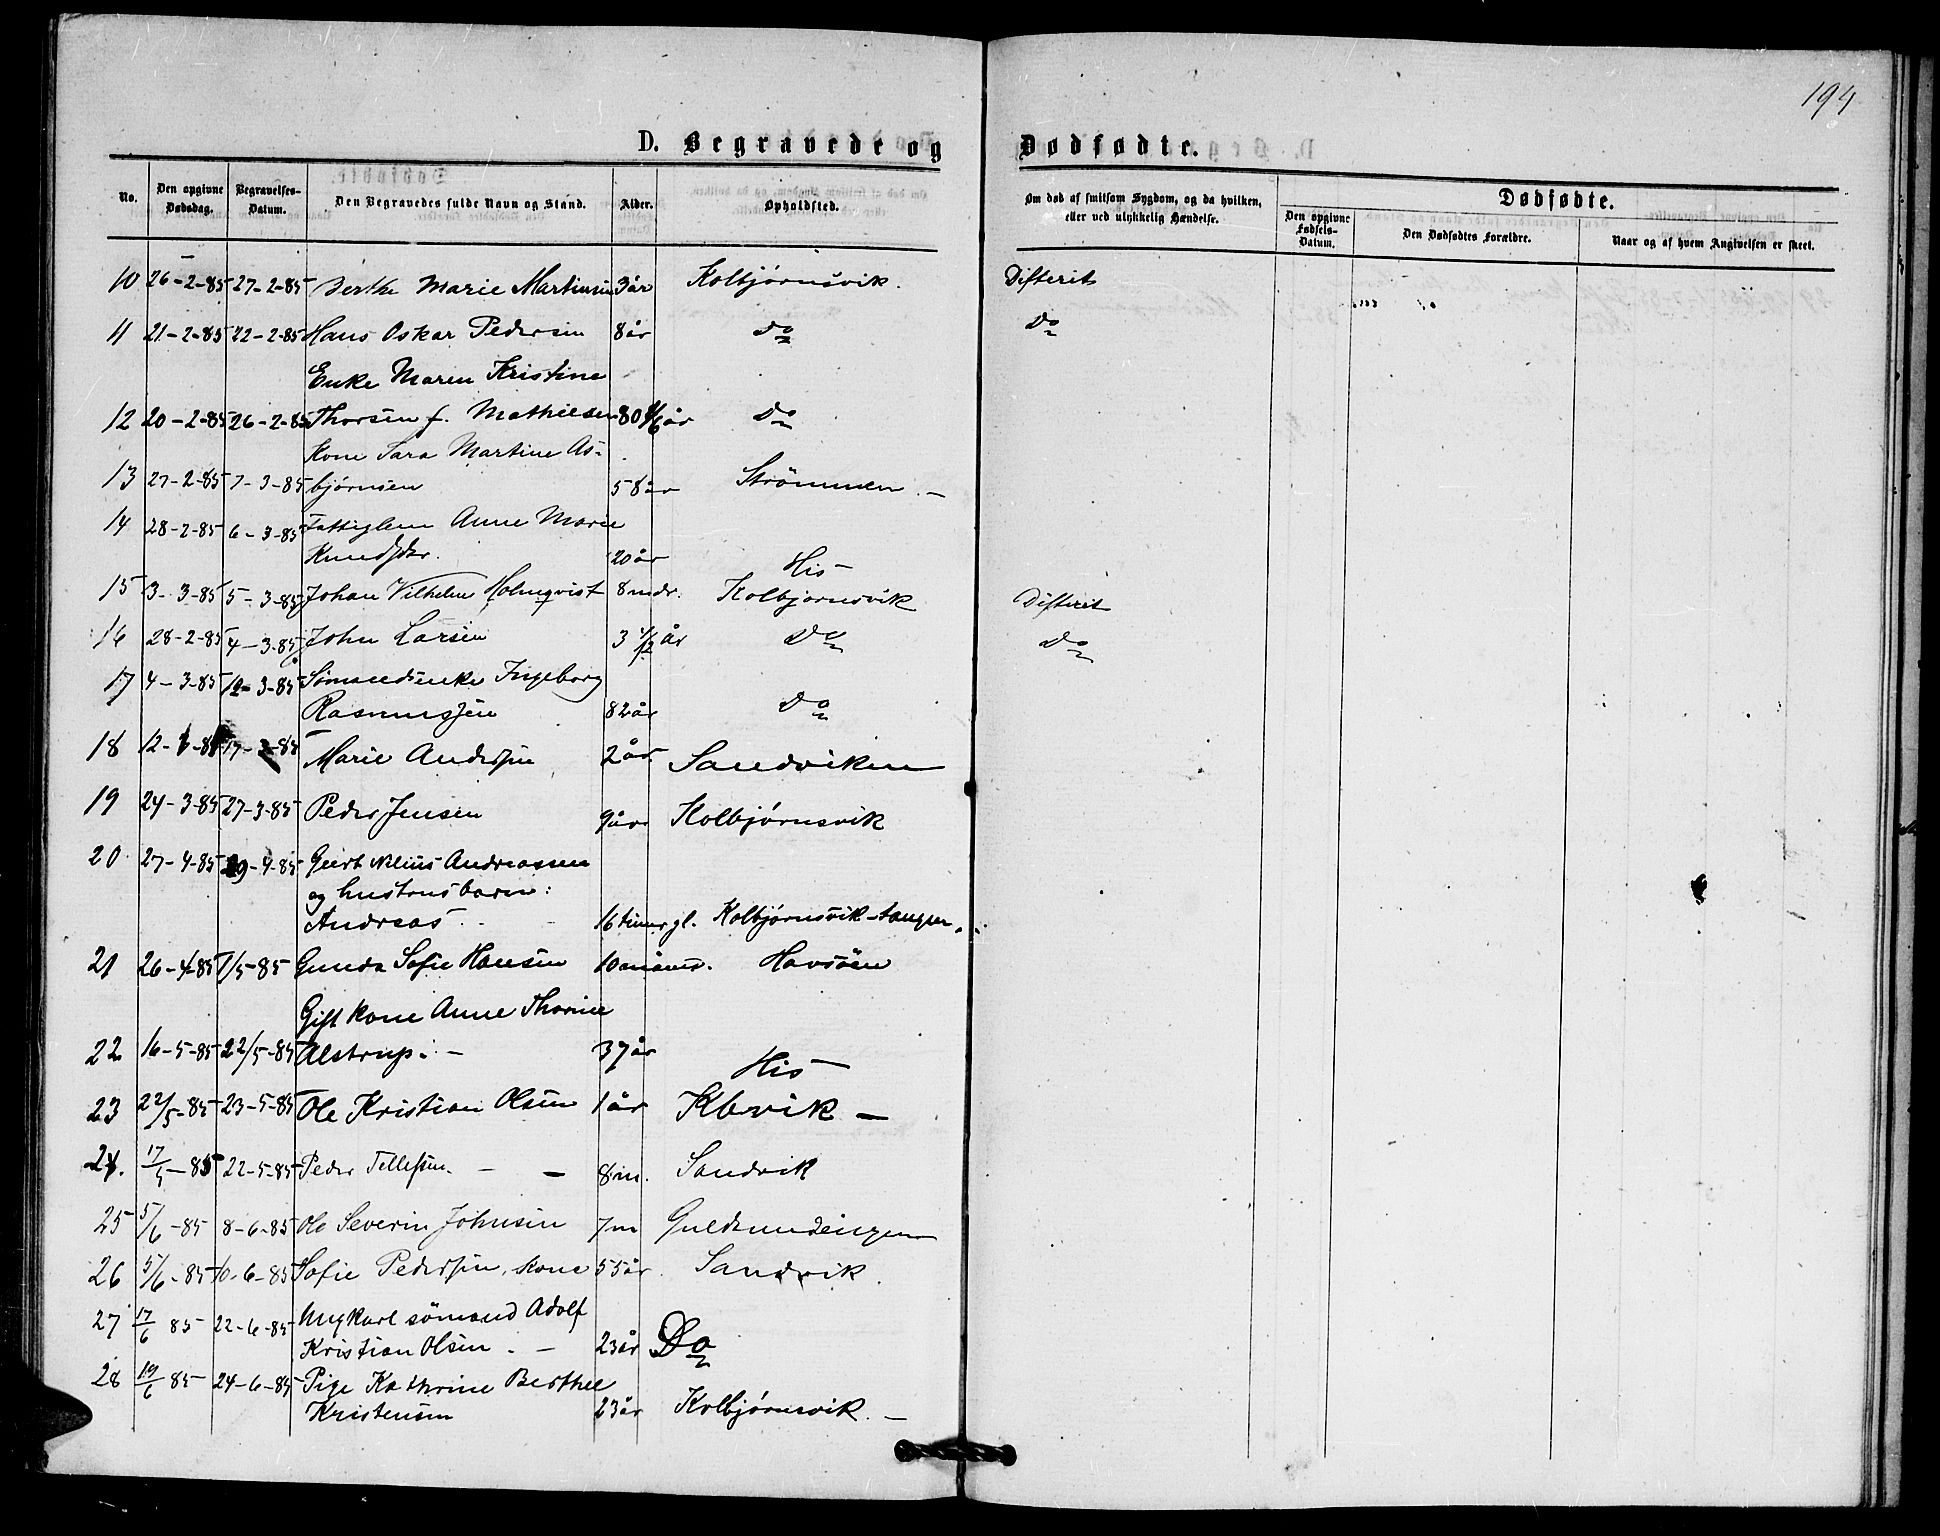 194
D. Begravede og Dødfødte.
No. Den opgivne Dødsdag. Begravelses-Datum. Den Begravedes fulde Navn og Stand. Alder. Opholdsted. Om død af smitsom Sygdom, og da hvilken, eller ved ulykkelig Hændelse. Dødfødte.
Den opgivne Fødsels-Datum. Den Dødfødtes Forældre. Naar og af hvem Angivelsen er skeet.
10 26-2-85 27-2-85 Berthe Marie Martinsen 3 år Kolbjørnsvik. Difterit
11 21-2-85 22-2-85 Hans Oskar Pedersen 8 år Do Do
Enke Maren Kristine
12 20-2-85 26-2-85 Thorsen f. Mathiesen 80 år Do
Kone Sara Martine As-
13 27-2-85 7-3-85 bjørnsen 58 år Strömmen. -
14 28-2-85 6-3-85 Fattiglem Anne Marie
Knudsdr. 20 år His
15 3-3-85 5-3-85 Johan Vilhelm Holmqvist 8 mdr. Kolbjornsvik Difterit
16 28-2-85 4-3-85 John Larsen 3 1/2 år Do Do
17 4-3-85 12-3-85 Sömandsenke Ingeborg
Rasmussen 82 år Do
18 12- 17- Marie Anderssen 2 år Sandviken
19 24-3-85 27-3-85 Peder Jensen 9 år Kolbjørnsvik
20 27-4-85 29-4-85 Geert Nilius Andreassen
og hustrus barn:
Andreas 16 timer gl. Kolbjørnsvik-tangen.
21 26-4-85 1/5-85 Gunda Sofie Hansen 10 måned. Havsöen
Gift kone Anne Thorine
22 16-5-85 22/5-85 Alstrup: - 37 år His
23 22/5-85 23-5-85 Ole Kristian Olsen 1 år Kbvik -
24. 17/5-85 22-5-85 Peder Tellefsen. - - 8 m. Sandvik
25 5/6-85 8-6-85 Ole Severin Johnsen 7 m Guldsmedengen
26 5/6-85 10-6-85 Sofie Pedersen, kone 55 år. Sandvik.
27 17/6 85 22-6-85 Ungkarl sömand Adolf
Kristian Olsen. - 23 år Do
28 19/6 85 24-6-85 Pige Kathrine Berthee
Kristensen 23 år Kolbjørnsvik. -